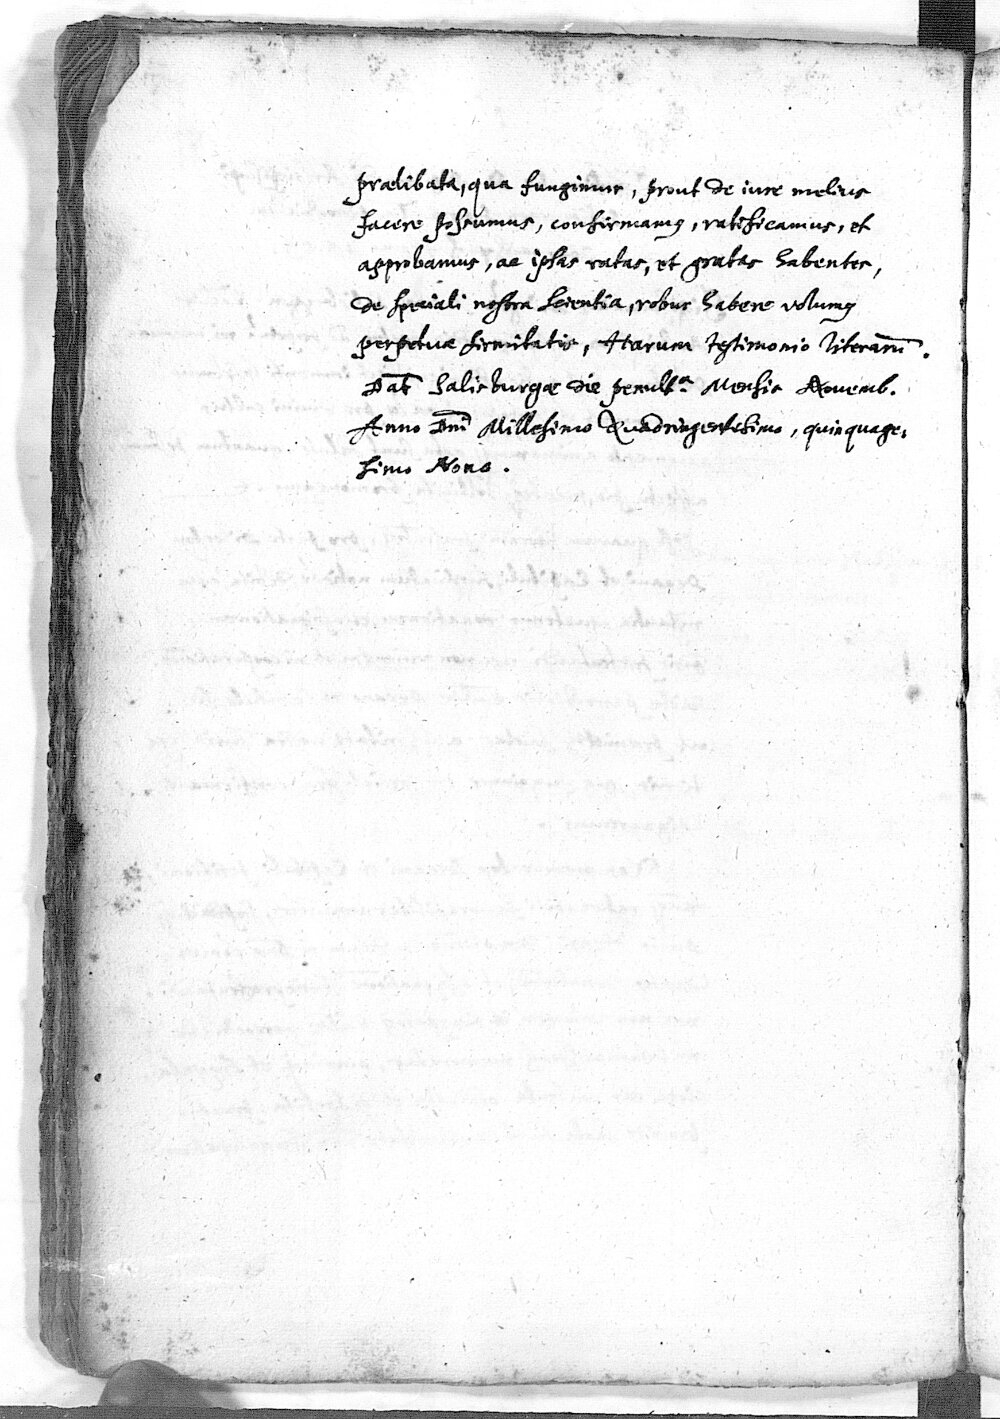 prælibata, qua fungimur, prout de iure melius
facere possumus, confirmamꝰ, ratificamus, et
approbamus, ac ipsas ratas, et gratas habentes,
de speciali nostra scientia, robur habere volumꝰ
perpetuæ firmitatis, Harum testimonio literarū.
Dat̄ Salisburgæ die penultᵃ Mensis Novemb.
Anno Dn̄i Millesimo Quadringentesimo, quinquage-
simo Nono.